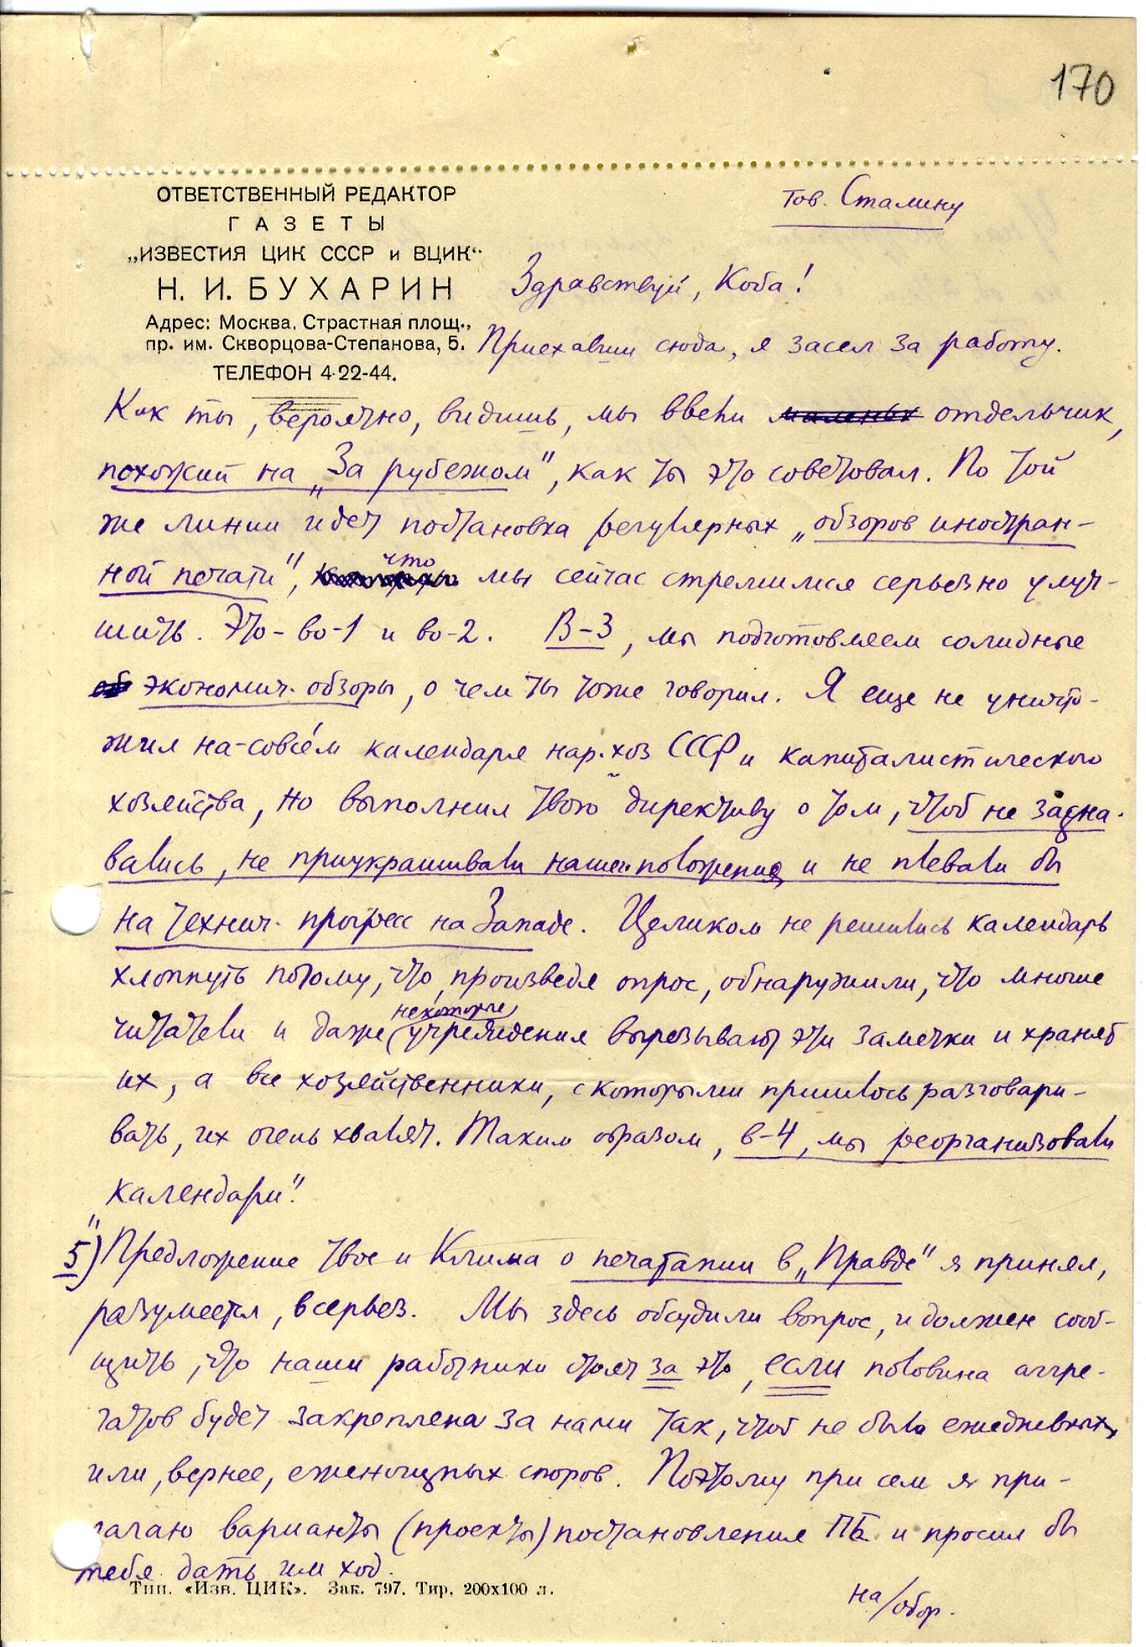 170
ОТВЕТСТВЕННЫЙ РЕДАКТОР
ГАЗЕТЫ
„ИЗВЕСТИЯ ЦИК СССР и ВЦИК“
Н. И. БУХАРИН
Адрес: Москва, Страстная площ.,
пр. им. Скворцова-Степанова, 5.
ТЕЛЕФОН 4-22-44.
Тов. Сталину
Здравствуй, Коба!
Приехавши сюда, я засел за работу.
Как ты, вероятно, видишь, мы ввели отдельчик,
похожий на „За рубежом", как ты это советовал. По той
же линии идет постановка регулярных „обзоров иностран-
ной печати", что мы сейчас стремимся серьезно улуч-
шить. Это - во-1 и во-2. В-3, мы подготовляем солидные
экономич. обзоры, о чем ты тоже говорил. Я еще не уничто-
жил на-совсéм календаря нар. хоз СССР и капиталистического
хозяйства, но выполнил твою директиву о том, чтоб не зазна-
вались, не приукрашивали нашего положения и не плевали бы
на технич. прогресс на Западе. Целиком не решились календарь
хлопнуть потому, что, произведя опрос, обнаружили, что многие
читатели и даже некоторые учреждения вырезывают эти заметки и хранят
их, а все хозяйственники, с которыми пришлось разговари-
вать, их очень хвалят. Таким образом, в-4, мы реорганизовали
„календари".
5) Предложение твое и Клима о печатании в „Правде" я принял,
разумеется, всерьез. Мы здесь обсудили вопрос, и должен сооб-
щить, что наши работники стоят за это, если половина агрре-
гатов будет закреплена за нами так, чтоб не было ежедневных,
или, вернее, еженощных споров. Поэтому при сем я при-
лагаю варианты (проекты) постановления ПБ и просил бы
тебя дать им ход.
Тип. «Изв. ЦИК». Зак. 797. Тир. 200х100 л.
на/обор.